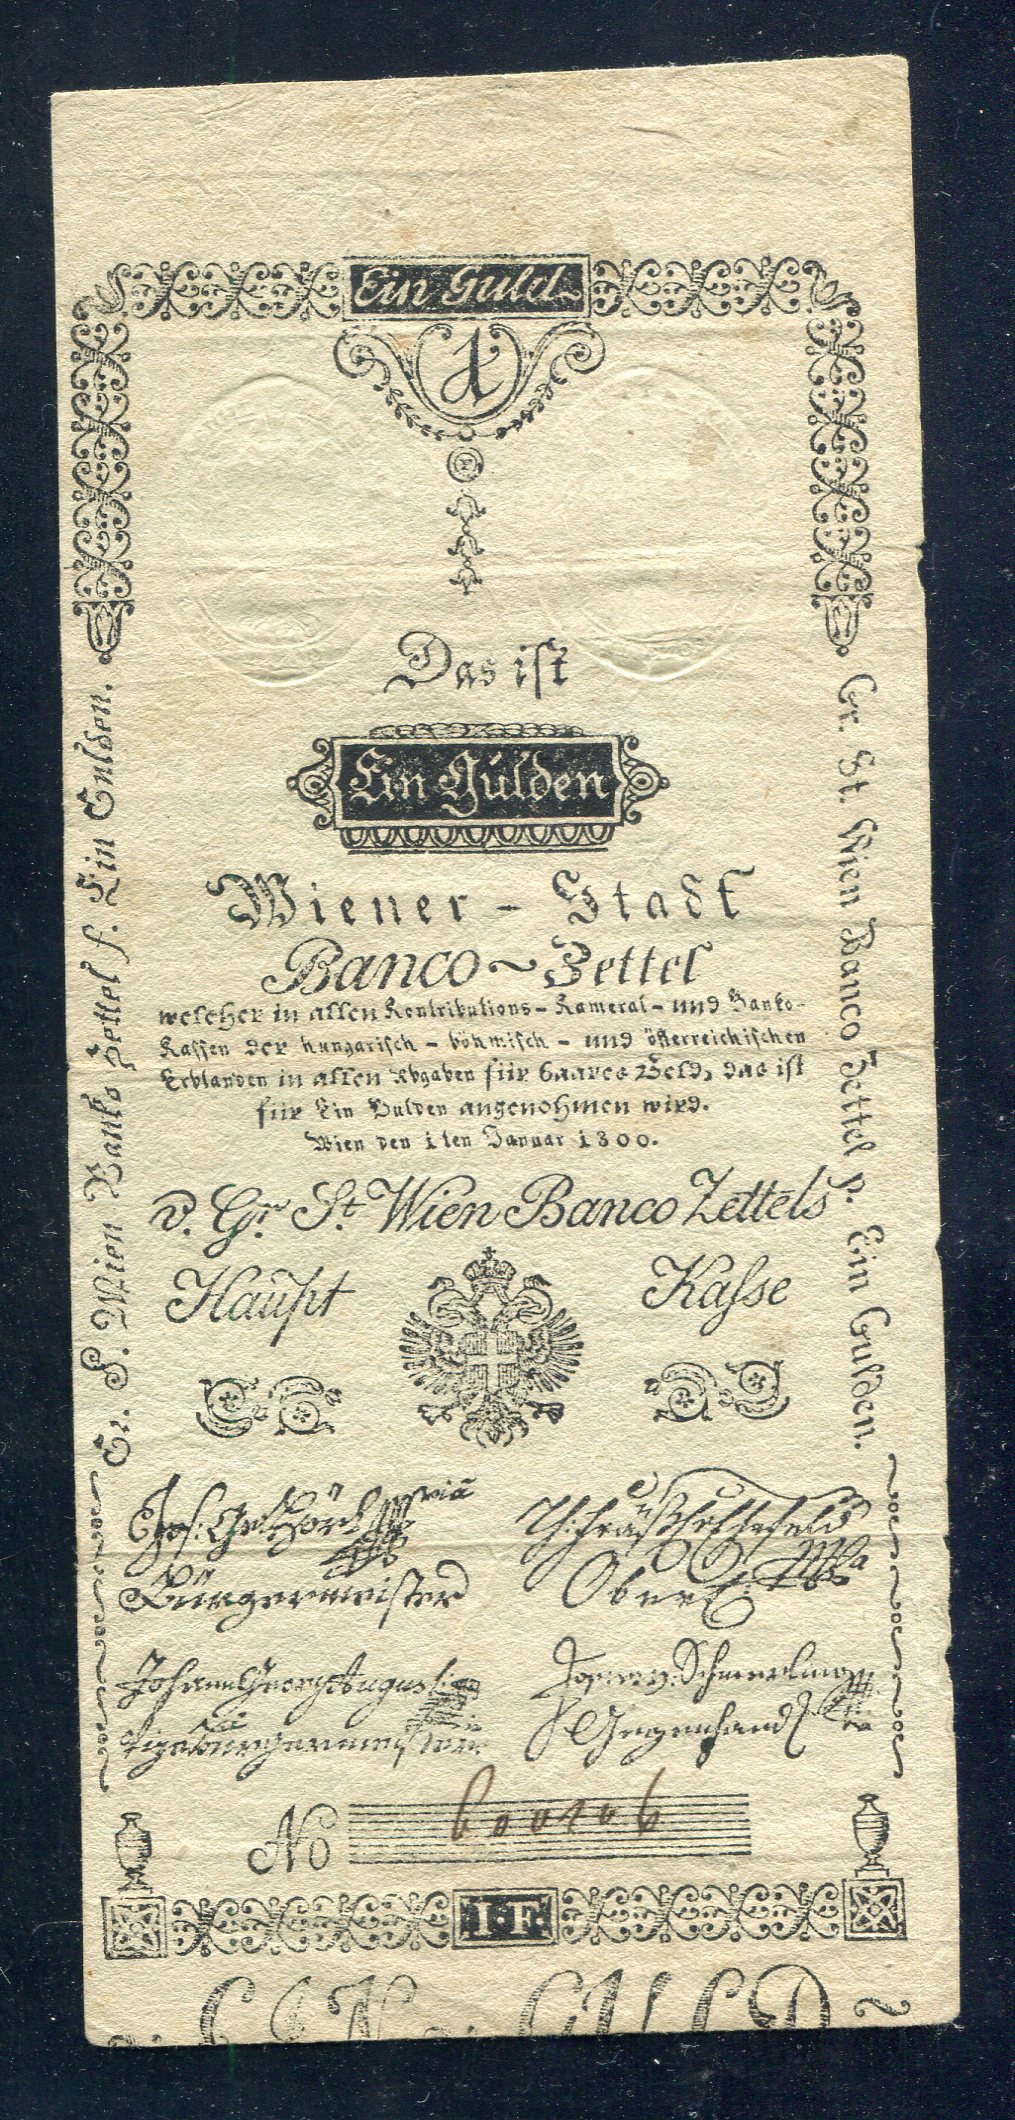 Ein Guld
1
Das ist
Ein Gulden
Wiener - Stadt
Banco ~ Zettel
welcher in allen Kontributions - Kameral - und Banko-
Kassen der hungarisch - böhmisch - und österreichischen
Erblanden in allen Abgaben für baares Geld, das ist
für Ein Gulden angenohmen wird.
Wien den 1ten Januar 1800.
v. Gr. St. Wien Banco Zettels
Haupt Kasse
Gr. S. Wien Banko Zettel f. Ein Gulden.
Gr. St. Wien Banco Zettel p. Ein Gulden.
Jos: Ge: Hörl
Bürgermeister
Ober
Johann Georg Augusti
Vizebürgermeister
v. Schmerling
Gegenhand
No 600406
I·F·
EIN GULD